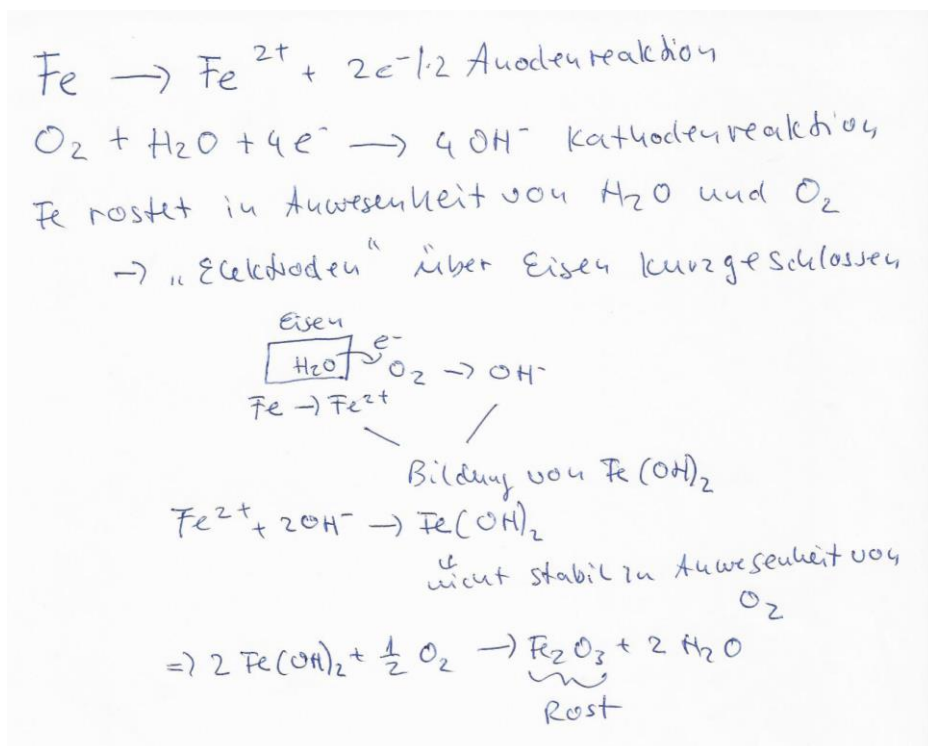 Fe → Fe²⁺ + 2e⁻ |·2 Anodenreaktion
O₂ + H₂O + 4e⁻ → 4 OH⁻ Kathodenreaktion
Fe rostet in Anwesenheit von H₂O und O₂
→ „Elektroden“ über Eisen kurzgeschlossen
Eisen
H₂O e⁻ O₂ → OH⁻
Fe → Fe²⁺
Bildung von Fe(OH)₂
Fe²⁺ + 2OH⁻ → Fe(OH)₂
nicht stabil in Anwesenheit von
O₂
⇒ 2 Fe(OH)₂ + ½ O₂ → Fe₂O₃ + 2 H₂O
Rost